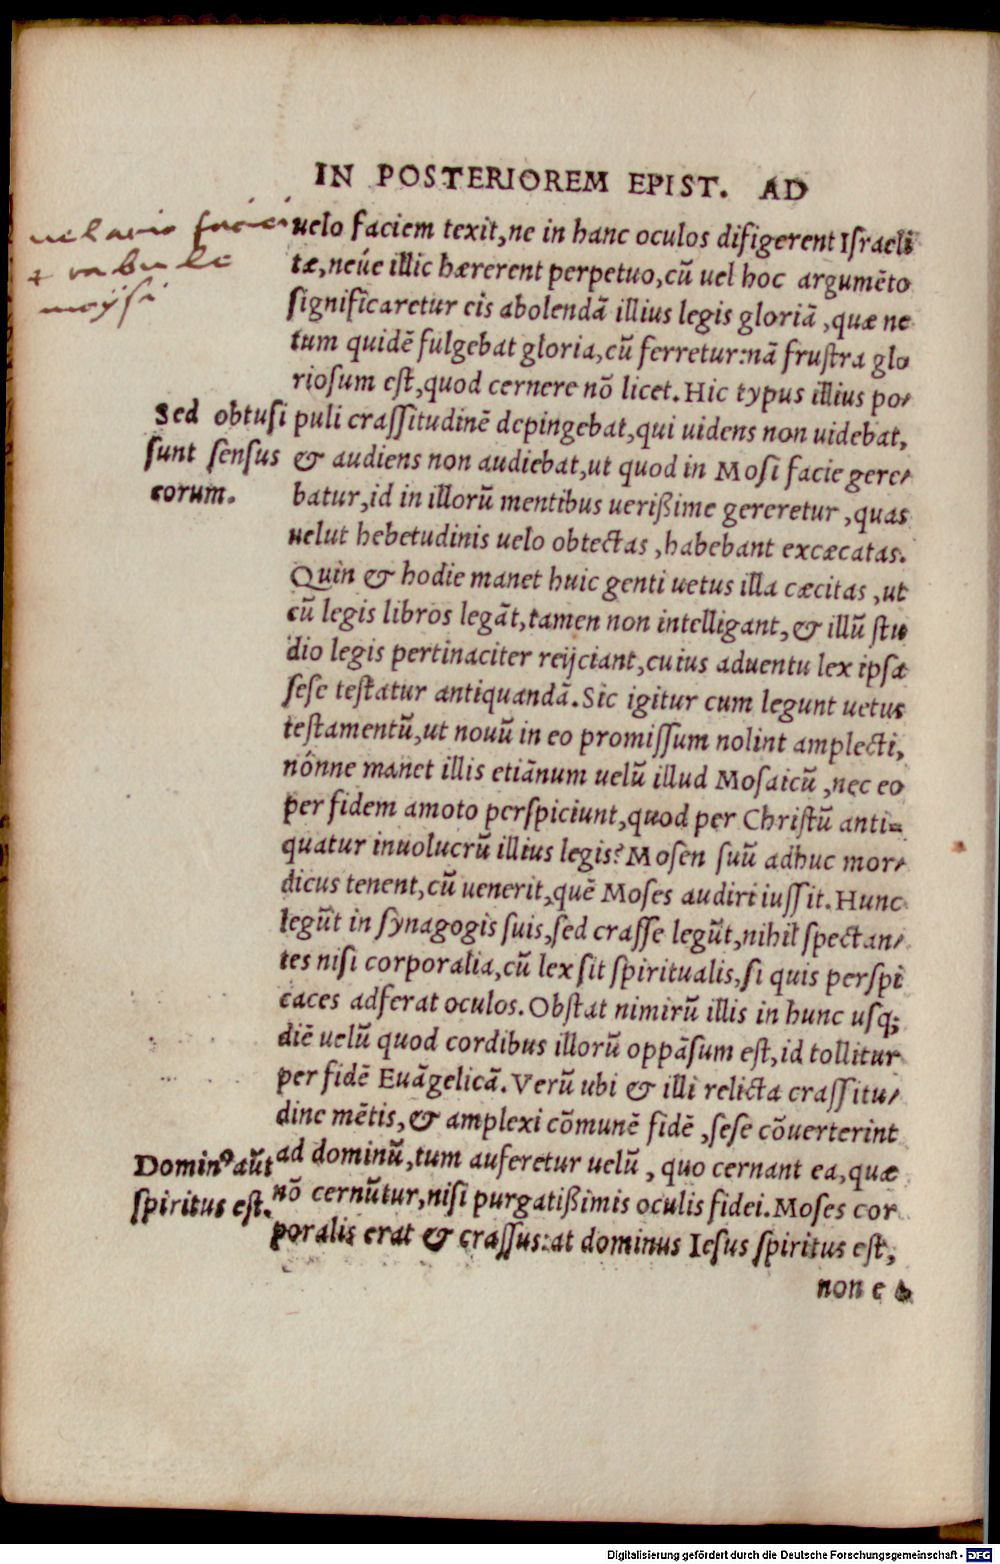 IN POSTERIOREM EPIST. AD
uelo faciem texit, ne in hanc oculos difigerent Israeli
tæ, neúe illic hærerent perpetuo, cũ uel hoc argumẽto
significaretur eis abolendã illius legis gloriã, quæ ne
tum quidẽ fulgebat gloria, cũ ferretur: nã frustra glo
riosum est, quod cernere nõ licet. Hic typus illius po⸗
puli crassitudinẽ depingebat, qui uidens non uidebat,
& audiens non audiebat, ut quod in Mosi facie gere⸗
batur, id in illorũ mentibus uerißime gereretur, quas
uelut hebetudinis uelo obtectas, habebant excæcatas.
Quin & hodie manet huic genti uetus illa cæcitas, ut
cũ legis libros legãt, tamen non intelligant, & illũ stu
dio legis pertinaciter reijciant, cuius aduentu lex ipsa
sese testatur antiquandã. Sic igitur cum legunt uetus
testamentũ, ut nouũ in eo promissum nolint amplecti,
nónne manet illis etiãnum uelũ illud Mosaicũ, nec eo
per fidem amoto perspiciunt, quod per Christũ anti⸗
quatur inuolucrũ illius legis? Mosen suũ adhuc mor⸗
dicus tenent, cũ uenerit, quẽ Moses audiri iussit. Hunc
legũt in synagogis suis, sed crasse legũt, nihil spectan⸗
tes nisi corporalia, cũ lex sit spiritualis, si quis perspi
caces adferat oculos. Obstat nimirũ illis in hunc usq;
diẽ uelũ quod cordibus illorũ oppãsum est, id tollitur
per fidẽ Euãgelicã. Verũ ubi & illi relicta crassitu⸗
dine mẽtis, & amplexi cõmunẽ fidẽ, sese cõuerterint
ad dominũ, tum auferetur uelũ, quo cernant ea, quæ
nõ cernũtur, nisi purgatißimis oculis fidei. Moses cor
poralis erat & crassus: at dominus Iesus spiritus est,
non e
moÿsi
Sed obtusi
sunt sensus
eorum.
Dominꝰ aũt
spiritus est.
Digitalisierung gefördert durch die Deutsche Forschungsgemeinschaft - DFG